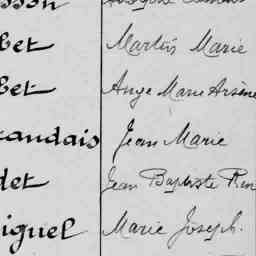 bet Martin Marie
bet Ange Marie Arsène
candais Jean Marie
det Jean Baptiste
iguel Marie Joseph.